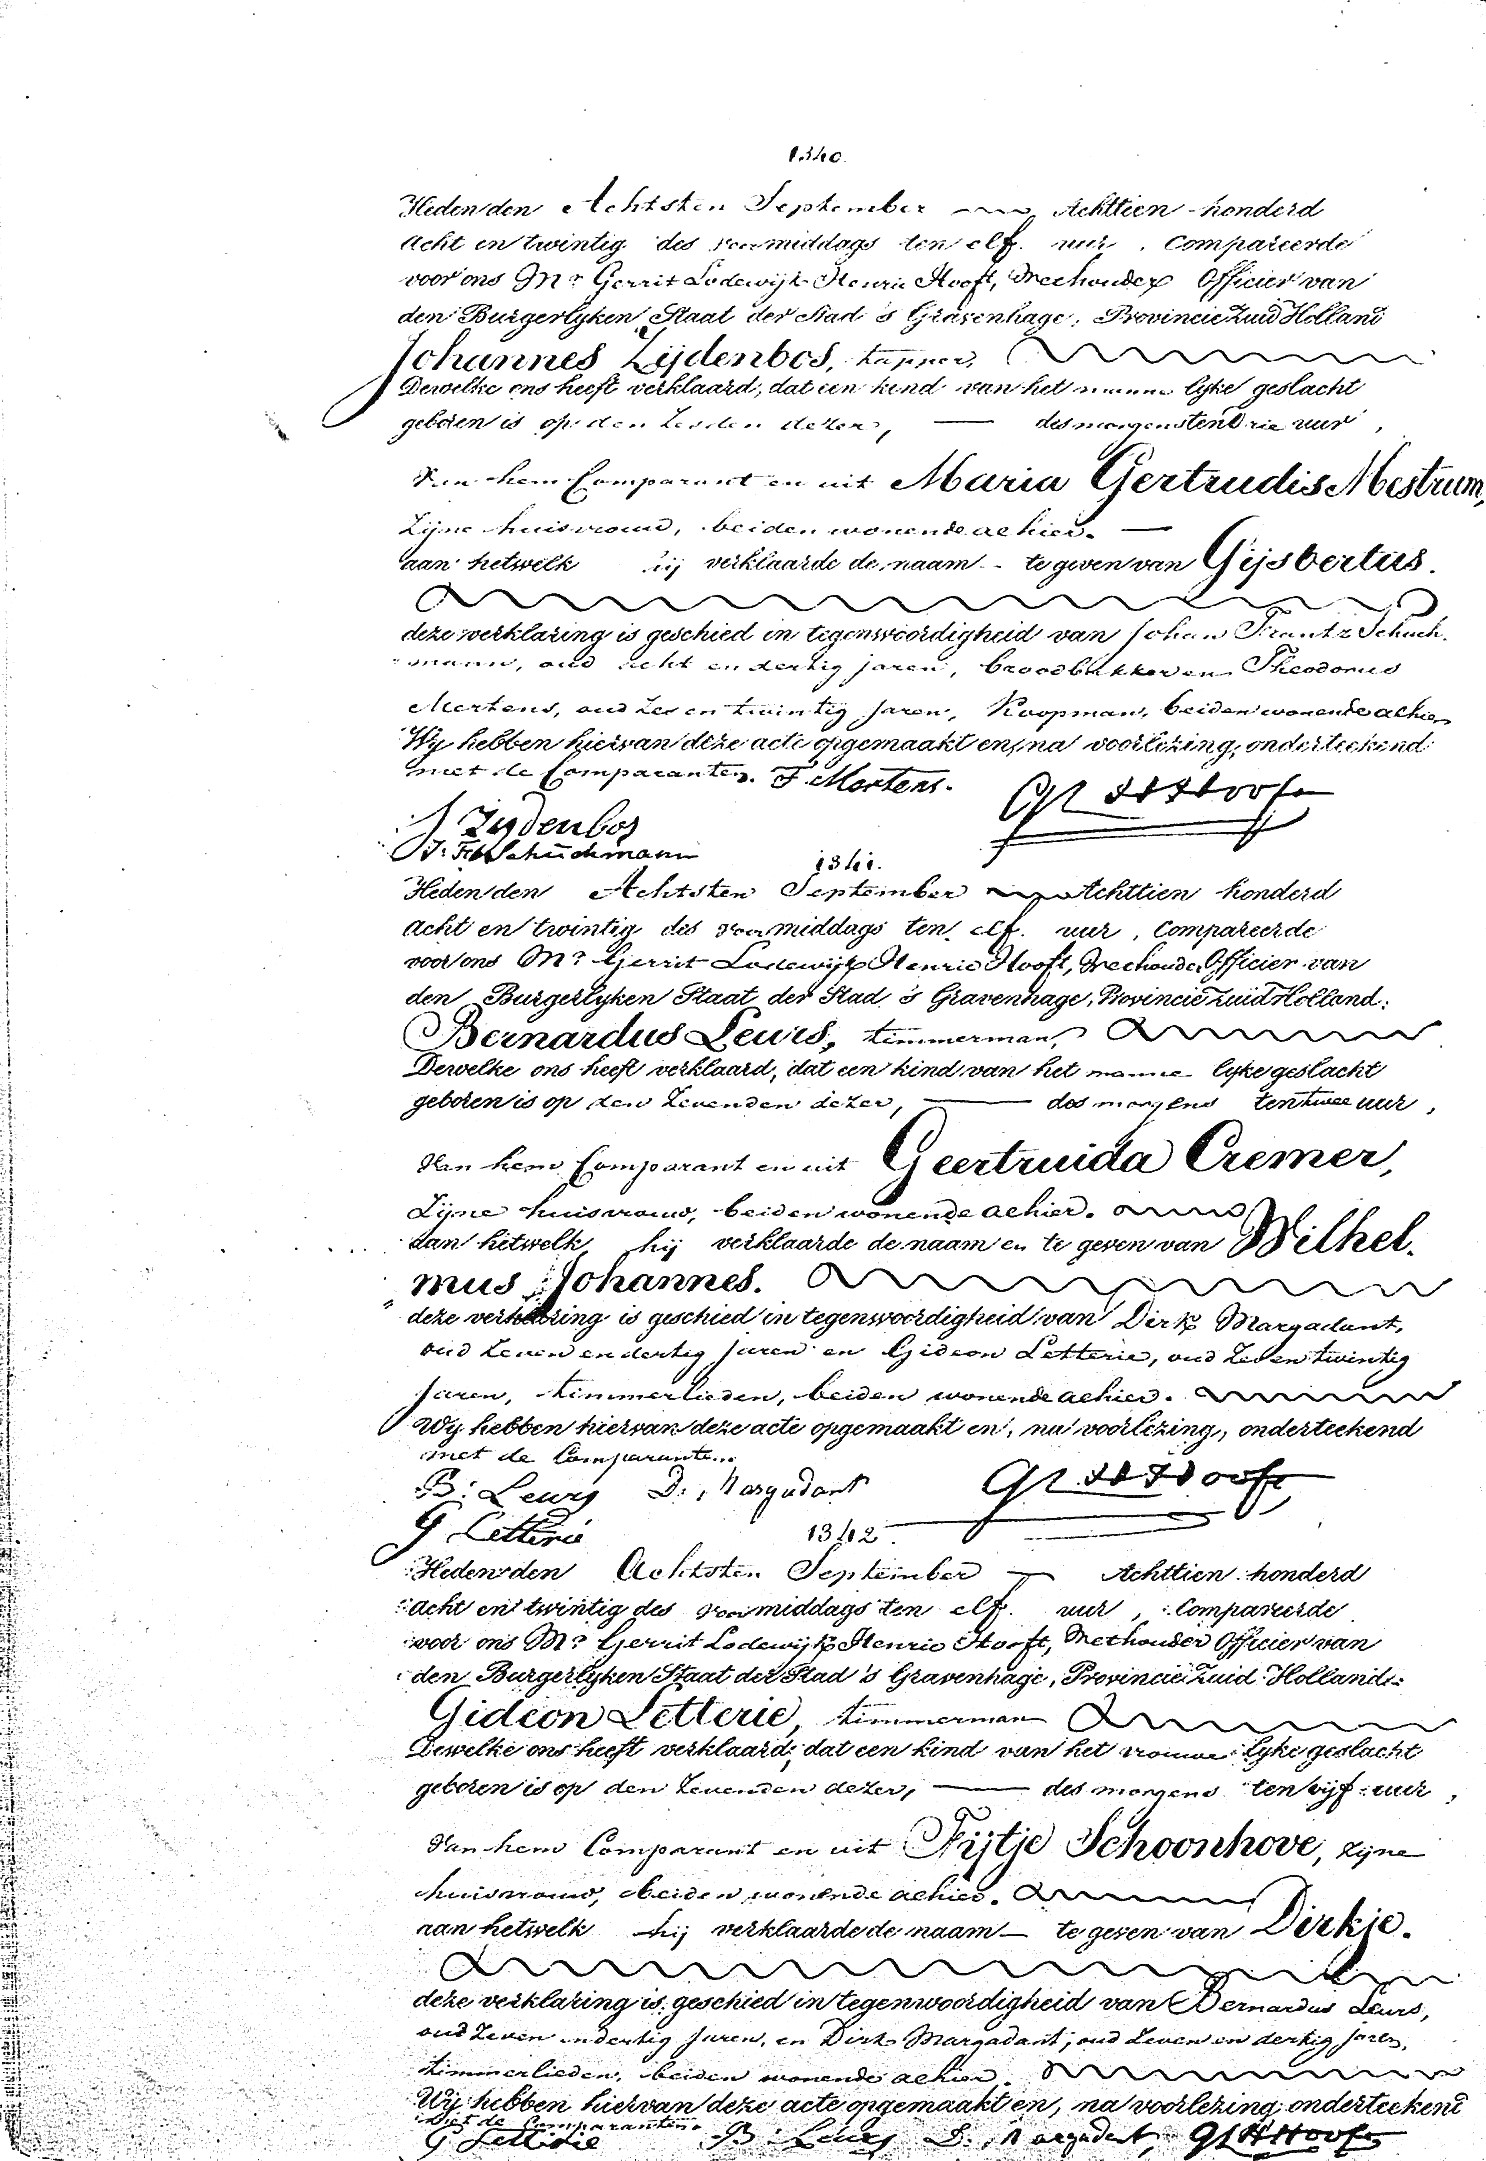 1340.
Heden den Achtsten September Achttien honderd
Acht en twintig des voormiddags ten elf uur, Compareerde
voor ons Mr Gerrit Lodewijk Henric Hooft, Wethouder Officier van
den Burgerlyken Staat der Stad 's Gravenhage, Provincie Zuid Holland
Johannes Zijdenbos, tapper,
Dewelke ons heeft verklaard, dat een kind van het manne lyke geslacht
geboren is op den Zesden dezer, — des morgens ten drie uur,
Van hem Comparant en uit Maria Gertrudis Mestrum,
Zijne huisvrouw, beiden wonende alhier. —
aan hetwelk hij verklaarde de naam - te geven van Gijsbertus.
deze verklaring is geschied in tegenwoordigheid van Johan Frantz Schuch-
mann, oud acht en dertig jaren, broodbakker en Theodorus
Mertens, oud Zes en twintig Jaren, Koopman, beiden wonende alhier
Wy hebben hiervan deze acte opgemaakt en, na voorlezing, onderteekend
met de Comparanten. T. Mertens. GLHHooft
J Zydenbos
J: Fr Schuchmann
1341.
Heden den Achtsten September Achttien honderd
Acht en twintig des voormiddags ten elf uur, Compareerde
voor ons Mr Gerrit Lodewijk Henric Hooft, Wethouder Officier van
den Burgerlyken Staat der Stad 's Gravenhage, Provincie Zuid Holland:
Bernardus Leurs, timmerman,
Dewelke ons heeft verklaard, dat een kind van het manne lyke geslacht
geboren is op den Zevenden dezer, — des morgens ten twee uur,
Van hem Comparant en uit Geertruida Cremer,
Zijne huisvrouw, beiden wonende alhier.
aan hetwelk hij verklaarde de naam en te geven van Wilhel-
mus Johannes.
deze verklaring is geschied in tegenwoordigheid van Dirk Margadant,
oud Zeven en dertig Jaren en Gideon Letterie, oud Zes en twintig
Jaren, timmerlieden, beiden wonende alhier.
Wy hebben hiervan deze acte opgemaakt en, na voorlezing, onderteekend
met de Comparanten.
B: Leurs D: Margadant GLHHooft
G Letterie
1342.
Heden den Achtsten September — Achttien honderd
Acht en twintig des voormiddags ten elf uur, Compareerde
voor ons Mr Gerrit Lodewijk Henric Hooft, Wethouder Officier van
den Burgerlyken Staat der Stad 's Gravenhage, Provincie Zuid Holland:
Gideon Letterie, timmerman
Dewelke ons heeft verklaard, dat een kind van het vrouwe lyke geslacht
geboren is op den Zevenden dezer, — des morgens ten vijf uur,
Van hem Comparant en uit Fijtje Schoonhove, zijne
huisvrouw, beiden wonende alhier.
aan hetwelk hij verklaarde de naam — te geven van Dirkje.
deze verklaring is geschied in tegenwoordigheid van Bernardus Leurs,
oud Zeven en dertig Jaren, en Dirk Margadant, oud Zeven en dertig jaren,
timmerlieden, beiden wonende alhier.
Wij hebben hiervan deze acte opgemaakt en, na voorlezing, onderteekend
met de Comparanten.
G Letterie B: Leurs D: Margadant, GLHHooft